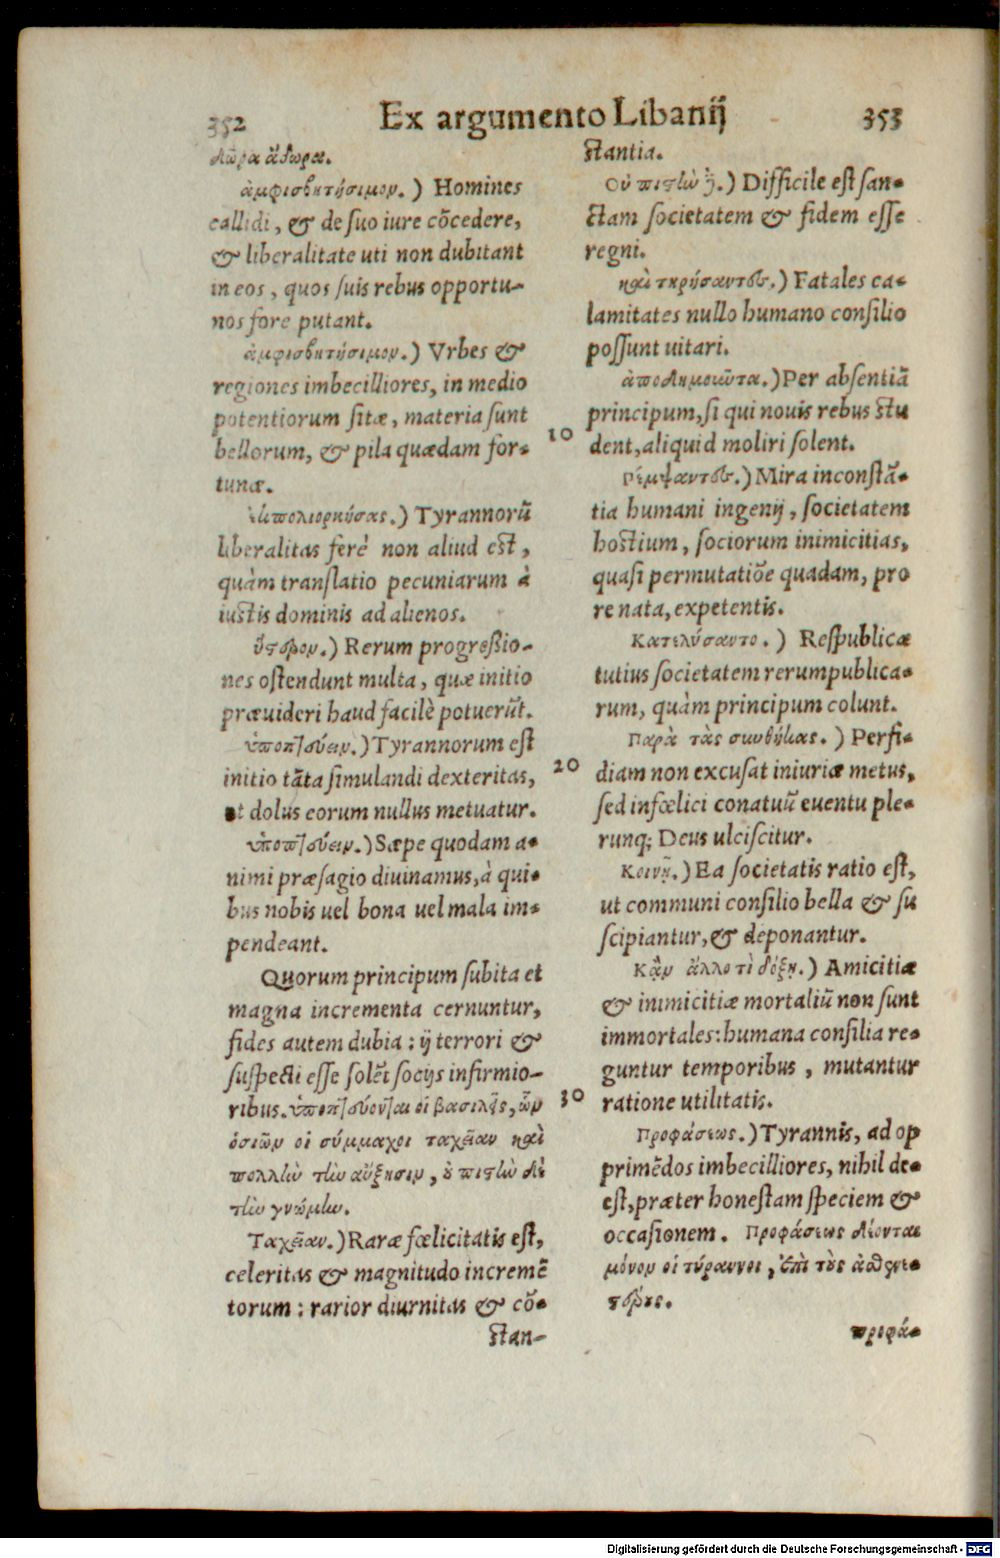 352 Ex argumento Libanij 353
δῶρα ἄδωρα.
ἀμφισβητήσιμον.) Homines
callidi, & de suo iure cōcedere,
& liberalitate uti non dubitant
in eos, quos suis rebus opportu-
nos fore putant.
ἀμφισβητήσιμον.) Vrbes &
regiones imbecilliores, in medio
potentiorum sitæ, materia sunt
bellorum, & pila quædam for-
tunæ.
ἐκπολιορκήσας.) Tyrannorū
liberalitas ferè non aliud est,
quàm translatio pecuniarum à
iustis dominis ad alienos.
ὕστερον.) Rerum progreßio-
nes ostendunt multa, quæ initio
præuideri haud facilè potuerūt.
ὑποπτεύειν.) Tyrannorum est
initio tāta simulandi dexteritas,
ut dolus eorum nullus metuatur.
ὑποπτεύειν.) Sæpe quodam a-
nimi præsagio diuinamus, à qui-
bus nobis uel bona uel mala im-
pendeant.
Quorum principum subita et
magna incrementa cernuntur,
fides autem dubia: ij terrori &
suspecti esse solēt socijs infirmio-
ribus. ὑποπτεύονται οἱ βασιλεῖς, ὧν
ὁσιῶν οἱ σύμμαχοι ταχεῖαν καὶ
πολλὴν τὴν αὔξησιν, οὐ πιστὴν δὲ
τὴν γνώμην.
Ταχεῖαν.) Raræ fœlicitatis est,
celeritas & magnitudo incremē
torum: rarior diurnitas & cō-
stan-
stantia.
Οὐ πιστὴν.) Difficile est san-
ctam societatem & fidem esse
regni.
καὶ τηρήσαντες.) Fatales ca-
lamitates nullo humano consilio
possunt uitari.
ἀποδημοῦντα.) Per absentiā
principum, si qui nouis rebus stu
10
dent, aliquid moliri solent.
πέμψαντες.) Mira inconstā-
tia humani ingenij, societatem
hostium, sociorum inimicitias,
quasi permutatiōe quadam, pro
re nata, expetentis.
Κατελύσαντο.) Respublicæ
tutius societatem rerumpublica-
rum, quàm principum colunt.
Παρὰ τὰς συνθήκας.) Perfi-
20
diam non excusat iniuriæ metus,
sed infœlici conatuū euentu ple-
runq; Deus ulciscitur.
Κοινῇ.) Ea societatis ratio est,
ut communi consilio bella & su
scipiantur, & deponantur.
Κἂν ἄλλο τὶ δόξῃ.) Amicitiæ
& inimicitiæ mortaliū non sunt
immortales: humana consilia re-
guntur temporibus, mutantur
30
ratione utilitatis.
Προφάσεως.) Tyrannis, ad op
primēdos imbecilliores, nihil de-
est, præter honestam speciem &
occasionem. Προφάσεως δέονται
μόνον οἱ τύραννοι, ἐπὶ τοὺς ἀσθενε-
στέρους.
προφά-
Digitalisierung gefördert durch die Deutsche Forschungsgemeinschaft - DFG